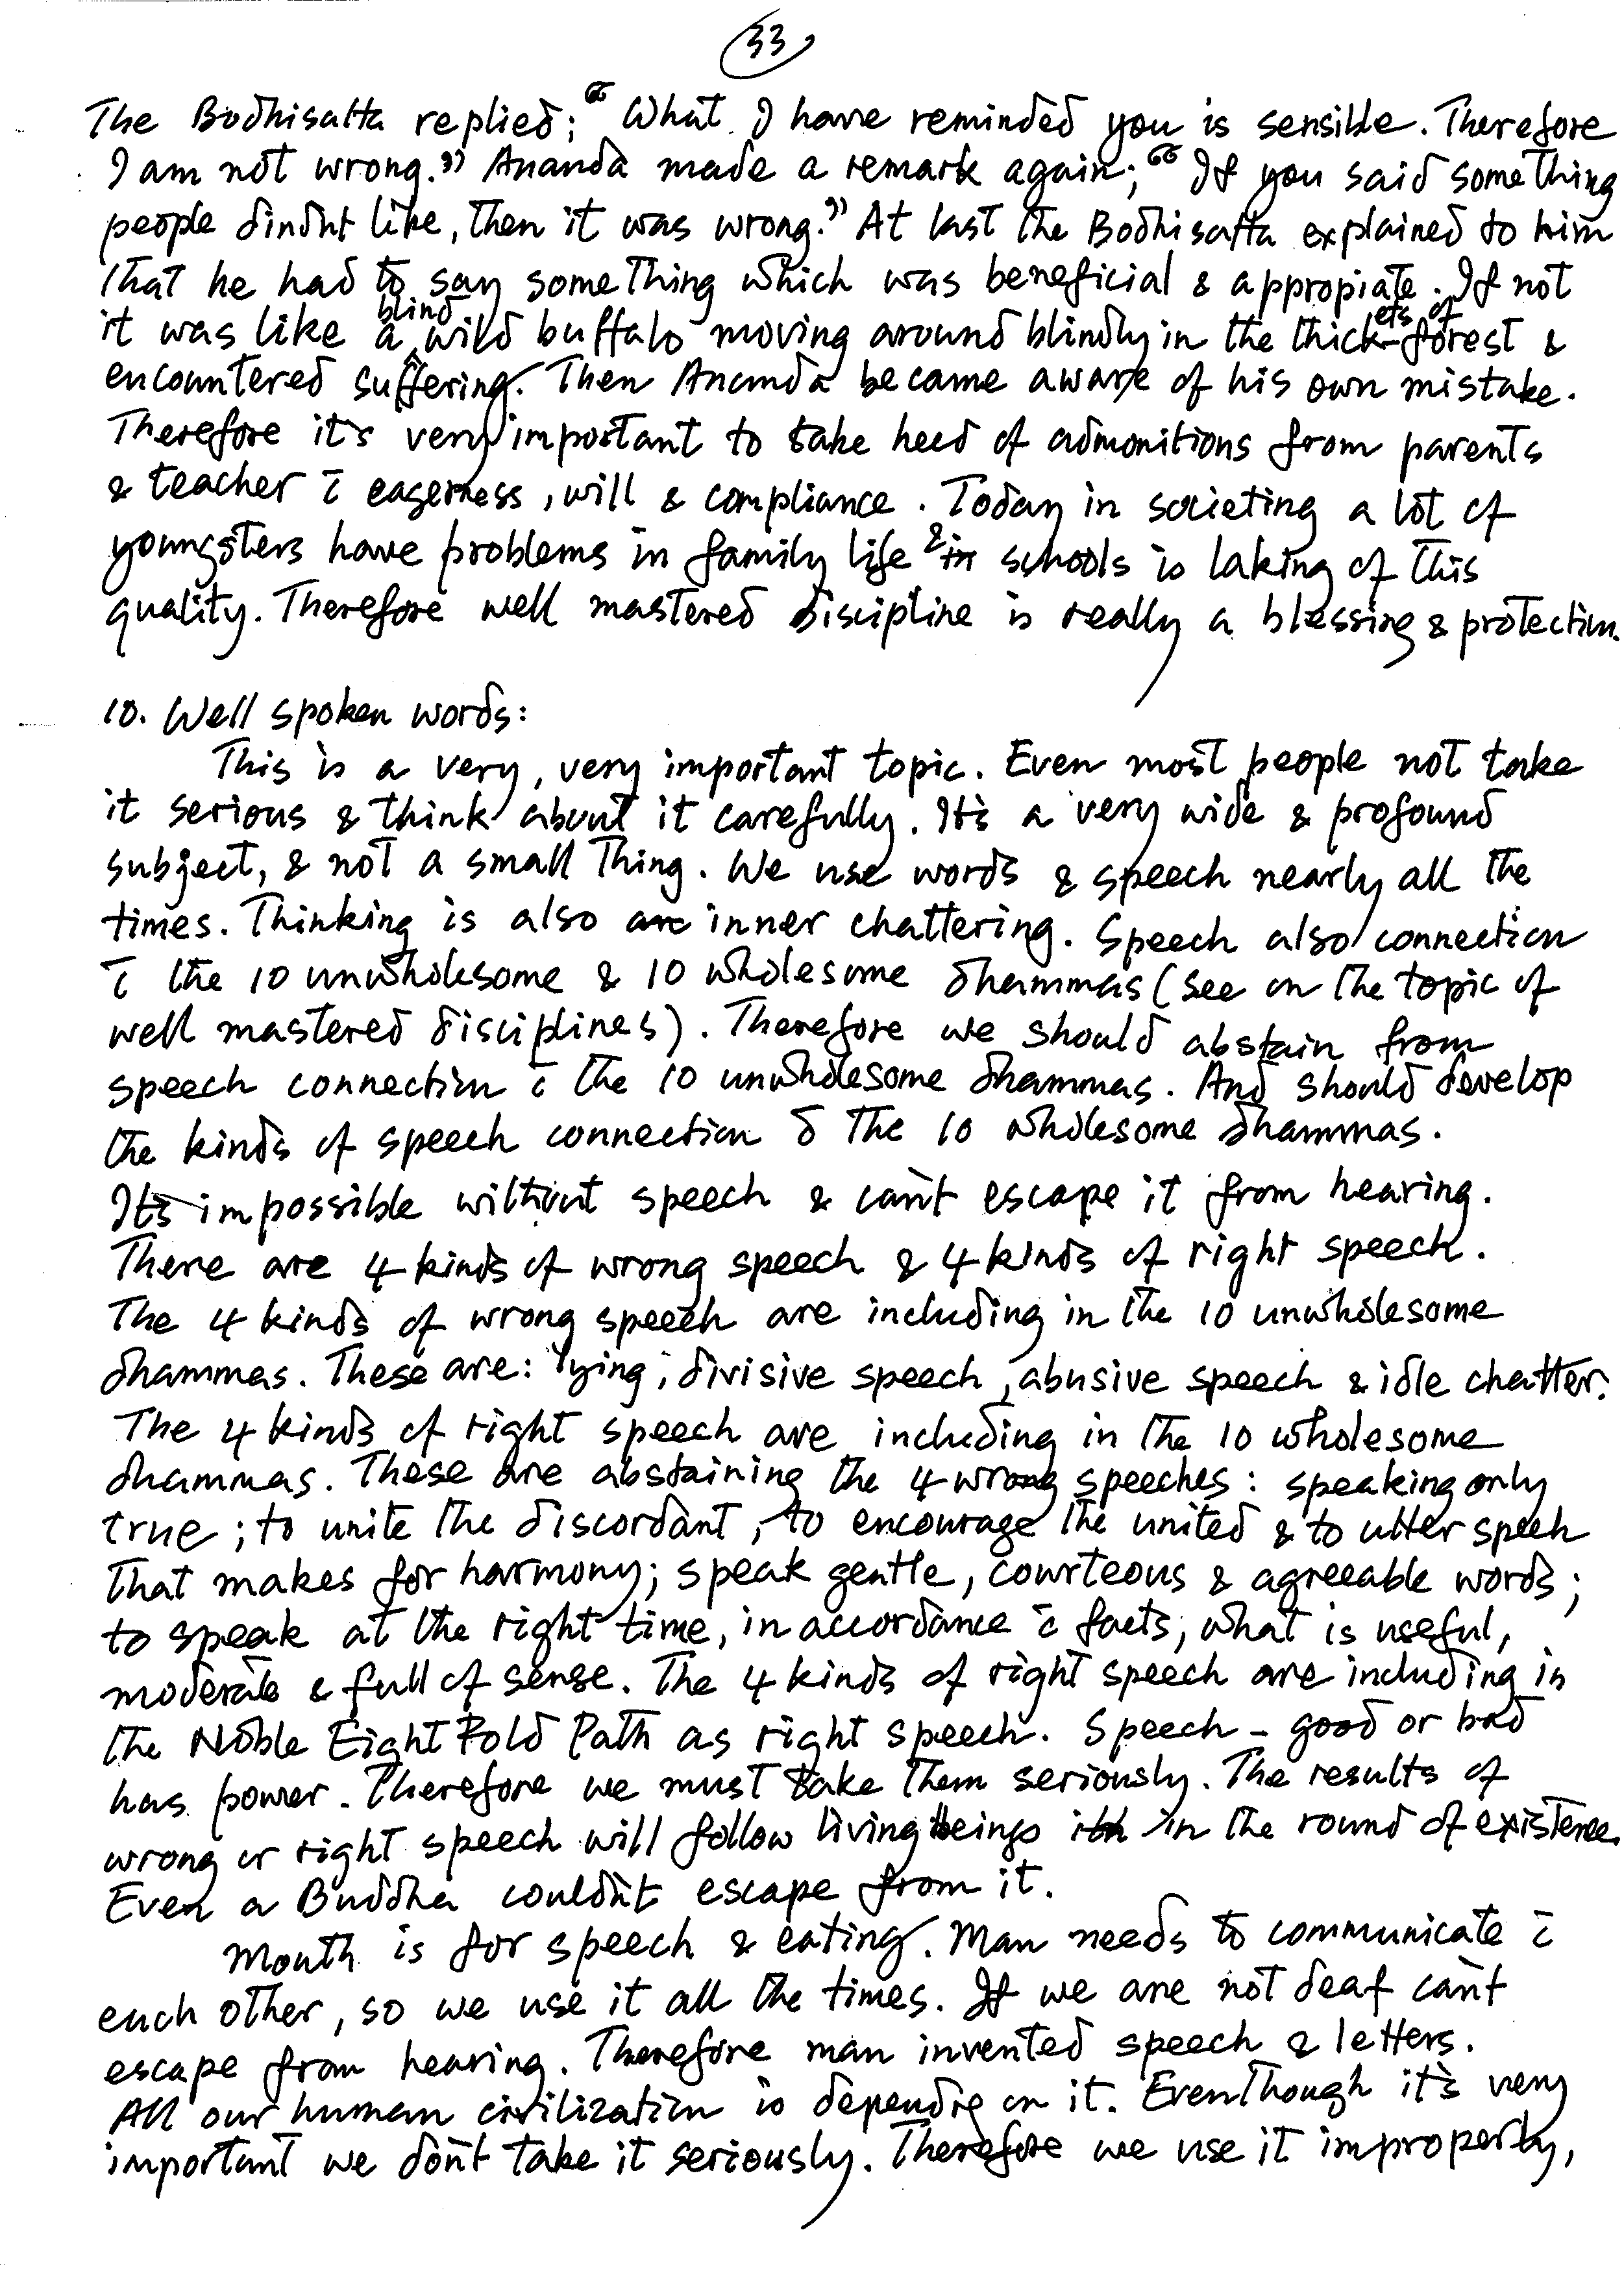 33
The Bodhisatta replied; "What I have reminded you is sensible. Therefore
I am not wrong." Ananda made a remark again; "If you said something
people dindnt like, then it was wrong." At last the Bodhisatta explained to him
that he had to say something which was beneficial & appropiate. If not
it was like a blind wild buffalo moving around blindly in the thickets of forest &
encountered suffering. Then Ananda became aware of his own mistake.
Therefore it's very important to take heed of admonitions from parents
& teacher c̄ eagerness, will & compliance. Today in societing a lot of
youngsters have problems in family life & schools is laking of this
quality. Therefore well mastered discipline is really a blessing & protection.
10. Well spoken words:
This is a very, very important topic. Even most people not take
it serious & think about it carefully. It's a very wide & profound
subject, & not a small thing. We use words & speech nearly all the
times. Thinking is also inner chattering. Speech also connection
c̄ the 10 unwholesome & 10 wholesome dhammas (see on the topic of
well mastered disciplines). Therefore we should abstain from
speech connection c̄ the 10 unwholesome dhammas. And should develop
the kinds of speech connection c̄ the 10 wholesome dhammas.
It's impossible without speech & can't escape it from hearing.
There are 4 kinds of wrong speech & 4 kinds of right speech.
The 4 kinds of wrong speech are including in the 10 unwholesome
dhammas. These are: lying, divisive speech, abusive speech & idle chatter.
The 4 kinds of right speech are including in the 10 wholesome
dhammas. These are abstaining the 4 wrong speeches: speaking only
true; to unite the discordant, to encourage the united & to utter speeh
that makes for harmony; speak gentle, courteous & agreeable words;
to speak at the right time, in accordance c̄ facts, what is useful,
moderate & full of sense. The 4 kinds of right speech are including in
the Noble Eight Fold Path as right speech. Speech – good or bad
has power. Therefore we must take them seriously. The results of
wrong or right speech will follow living beings in the round of existence.
Even a Buddha couldn't escape from it.
Mouth is for speech & eating. Man needs to communicate c̄
each other, so we use it all the times. If we are not deaf can't
escape from hearing. Therefore man invented speech & letters.
All our human civilization is dependig on it. Even though it's very
important we don't take it seriously. Therefore we use it improperly,